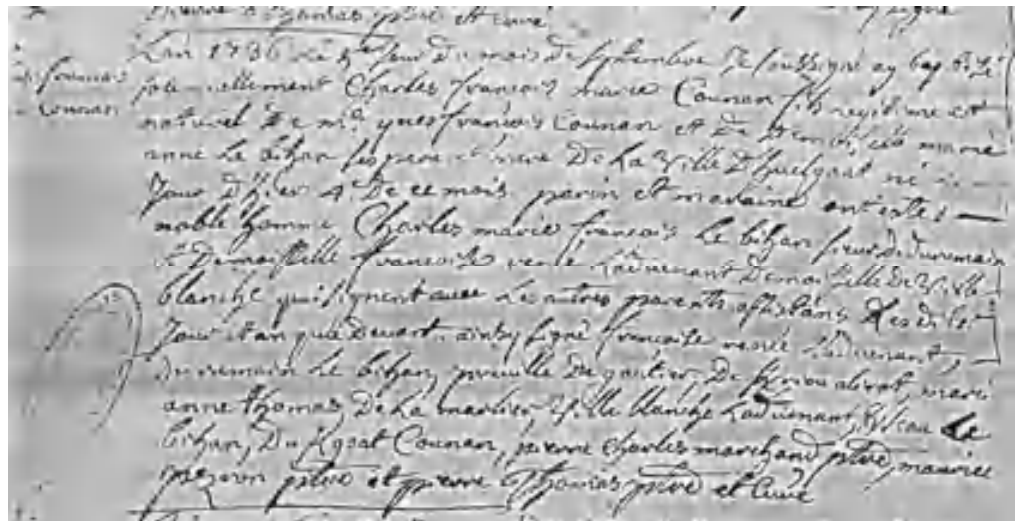 pierre Thomas ptre et curé
L'an 1736 le 5e jour du mois de septembre Je soussigné ay baptizé
solemnellement Charles françois marie Counan fils legitime et
naturel de mr. yves françois Counan et de demoiselle marie
anne Le bihan ses pere et mere de La ville d'huelgoat né
Jour d'hier 4e De ce mois parin et maraine ont esté
noble homme Charles marie françois Le bihan sieur du
et Demoiselle françoise renée Ladvenant demoiselle de ville
blanche qui signent avec Les autres parents assistans Lesdits
Jour et an que devant. ainsy signé françoise renée Ladvenant,
Le bihan, de gautier, marie
anne Thomas, De La ville blanche Ladvenant, Le
bihan, Du Counan, pierre Charles marchand ptre, maurice
ptre et pierre Thomas ptre et Curé
françois
Counan